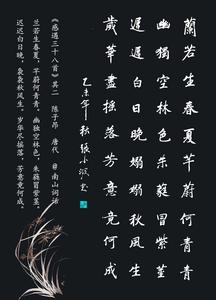 蘭若生春夏芊蔚何青青
幽獨空林色朱蕤冒紫莖
遲遲白日晚嫋嫋秋風生
歲華盡搖落芳意竟何成
乙未年秋張小
《感遇三十八首》其二 陈子昂 唐代 @南山词话
兰若生春夏,芊蔚何青青。幽独空林色,朱蕤冒紫茎。
迟迟白日晚,袅袅秋风生。岁华尽摇落,芳意竟何成。